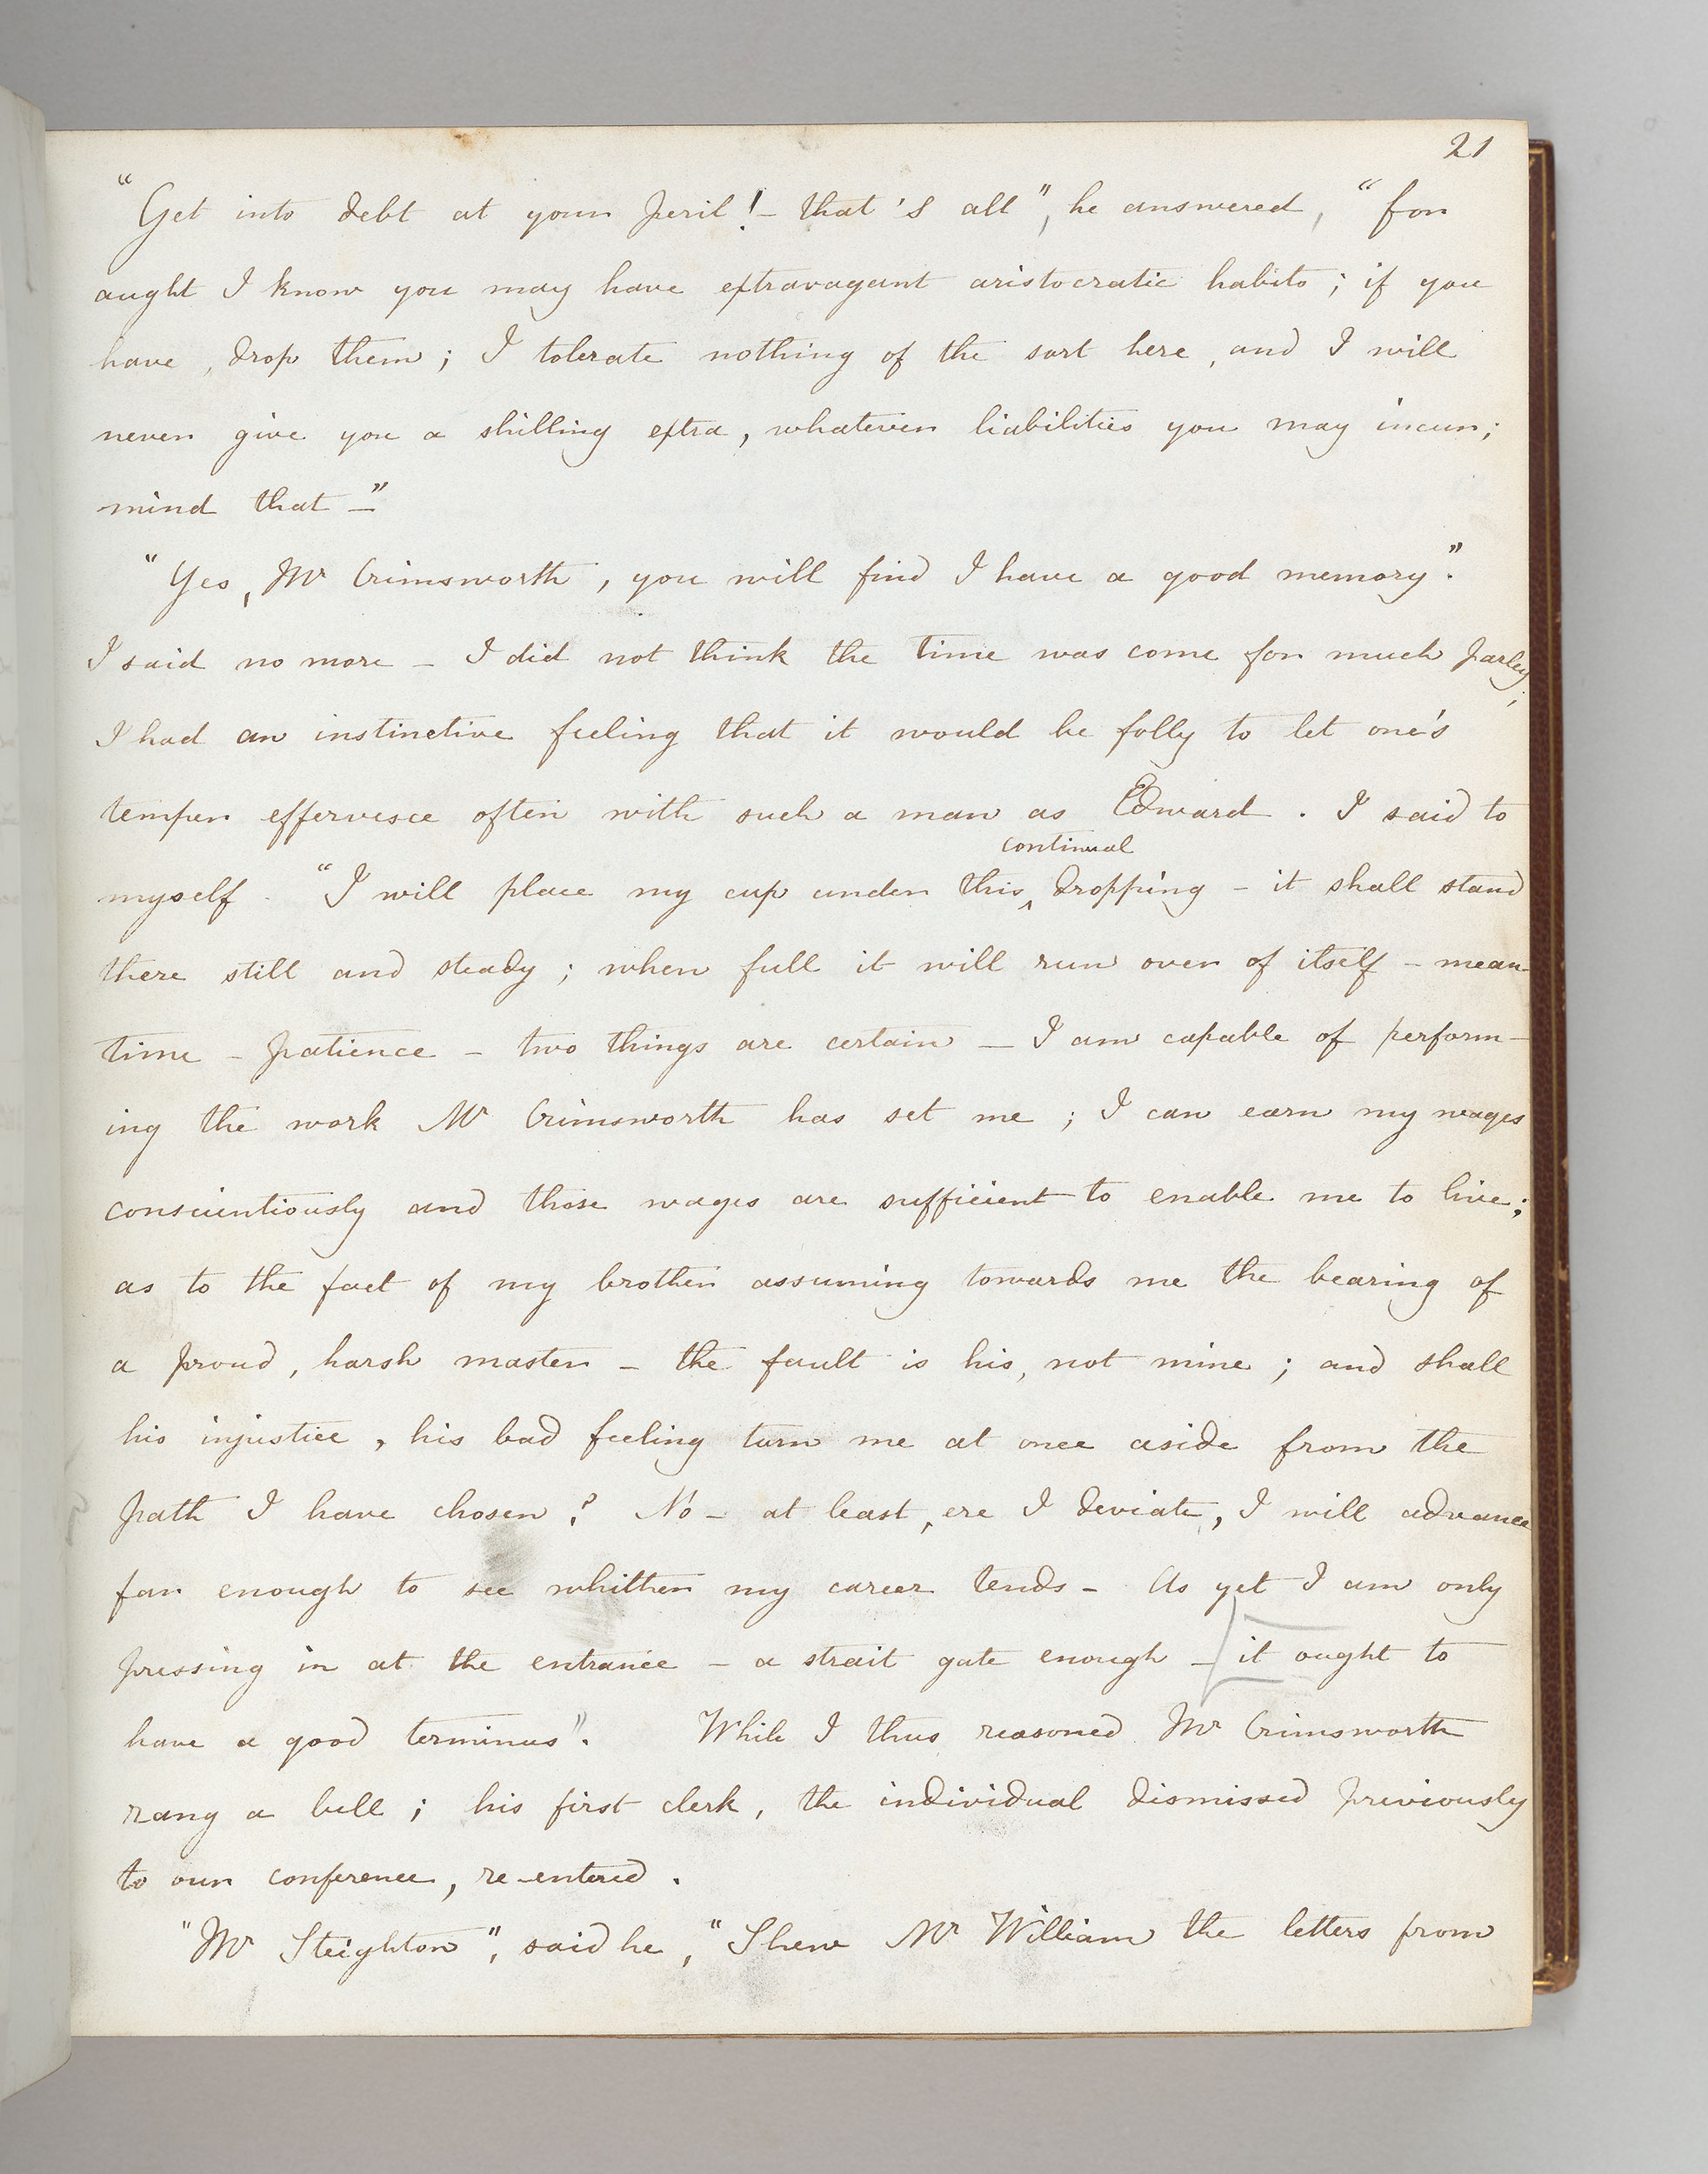 21
"Get into debt at your peril! – that's all", he answered, "for
aught I know you may have extravagant aristocratic habits; if you
have, drop them; I tolerate nothing of the sort here, and I will
never give you a shilling extra, whatever liabilities you may incur;
mind that –"
"Yes, Mr Crimsworth, you will find I have a good memory."
I said no more – I did not think the time was come for much parley;
I had an instinctive feeling that it would be folly to let one's
temper effervesce often with such a man as Edward. I said to
continual
myself. "I will place my cup under this ‸ dropping – it shall stand
there still and steady; when full it will run over of itself – mean-
time – patience – two things are certain – I am capable of perform-
ing the work Mr Crimsworth has set me; I can earn my wages
conscientiously and those wages are sufficient to enable me to live;
as to the fact of my brother assuming towards me the bearing of
a proud, harsh master – the fault is his, not mine; and shall
his injustice, his bad feeling turn me at once aside from the
path I have chosen? No – at least, ere I deviate, I will advance
far enough to see whither my career tends – As yet I am only
pressing in at the entrance – a strait gate enough – it ought to
have a good terminus". While I thus reasoned Mr Crimsworth
rang a bell; his first clerk, the individual dismissed previously
to our conference, re-entered.
"Mr Steighton", said he, "Shew Mr William the letters from